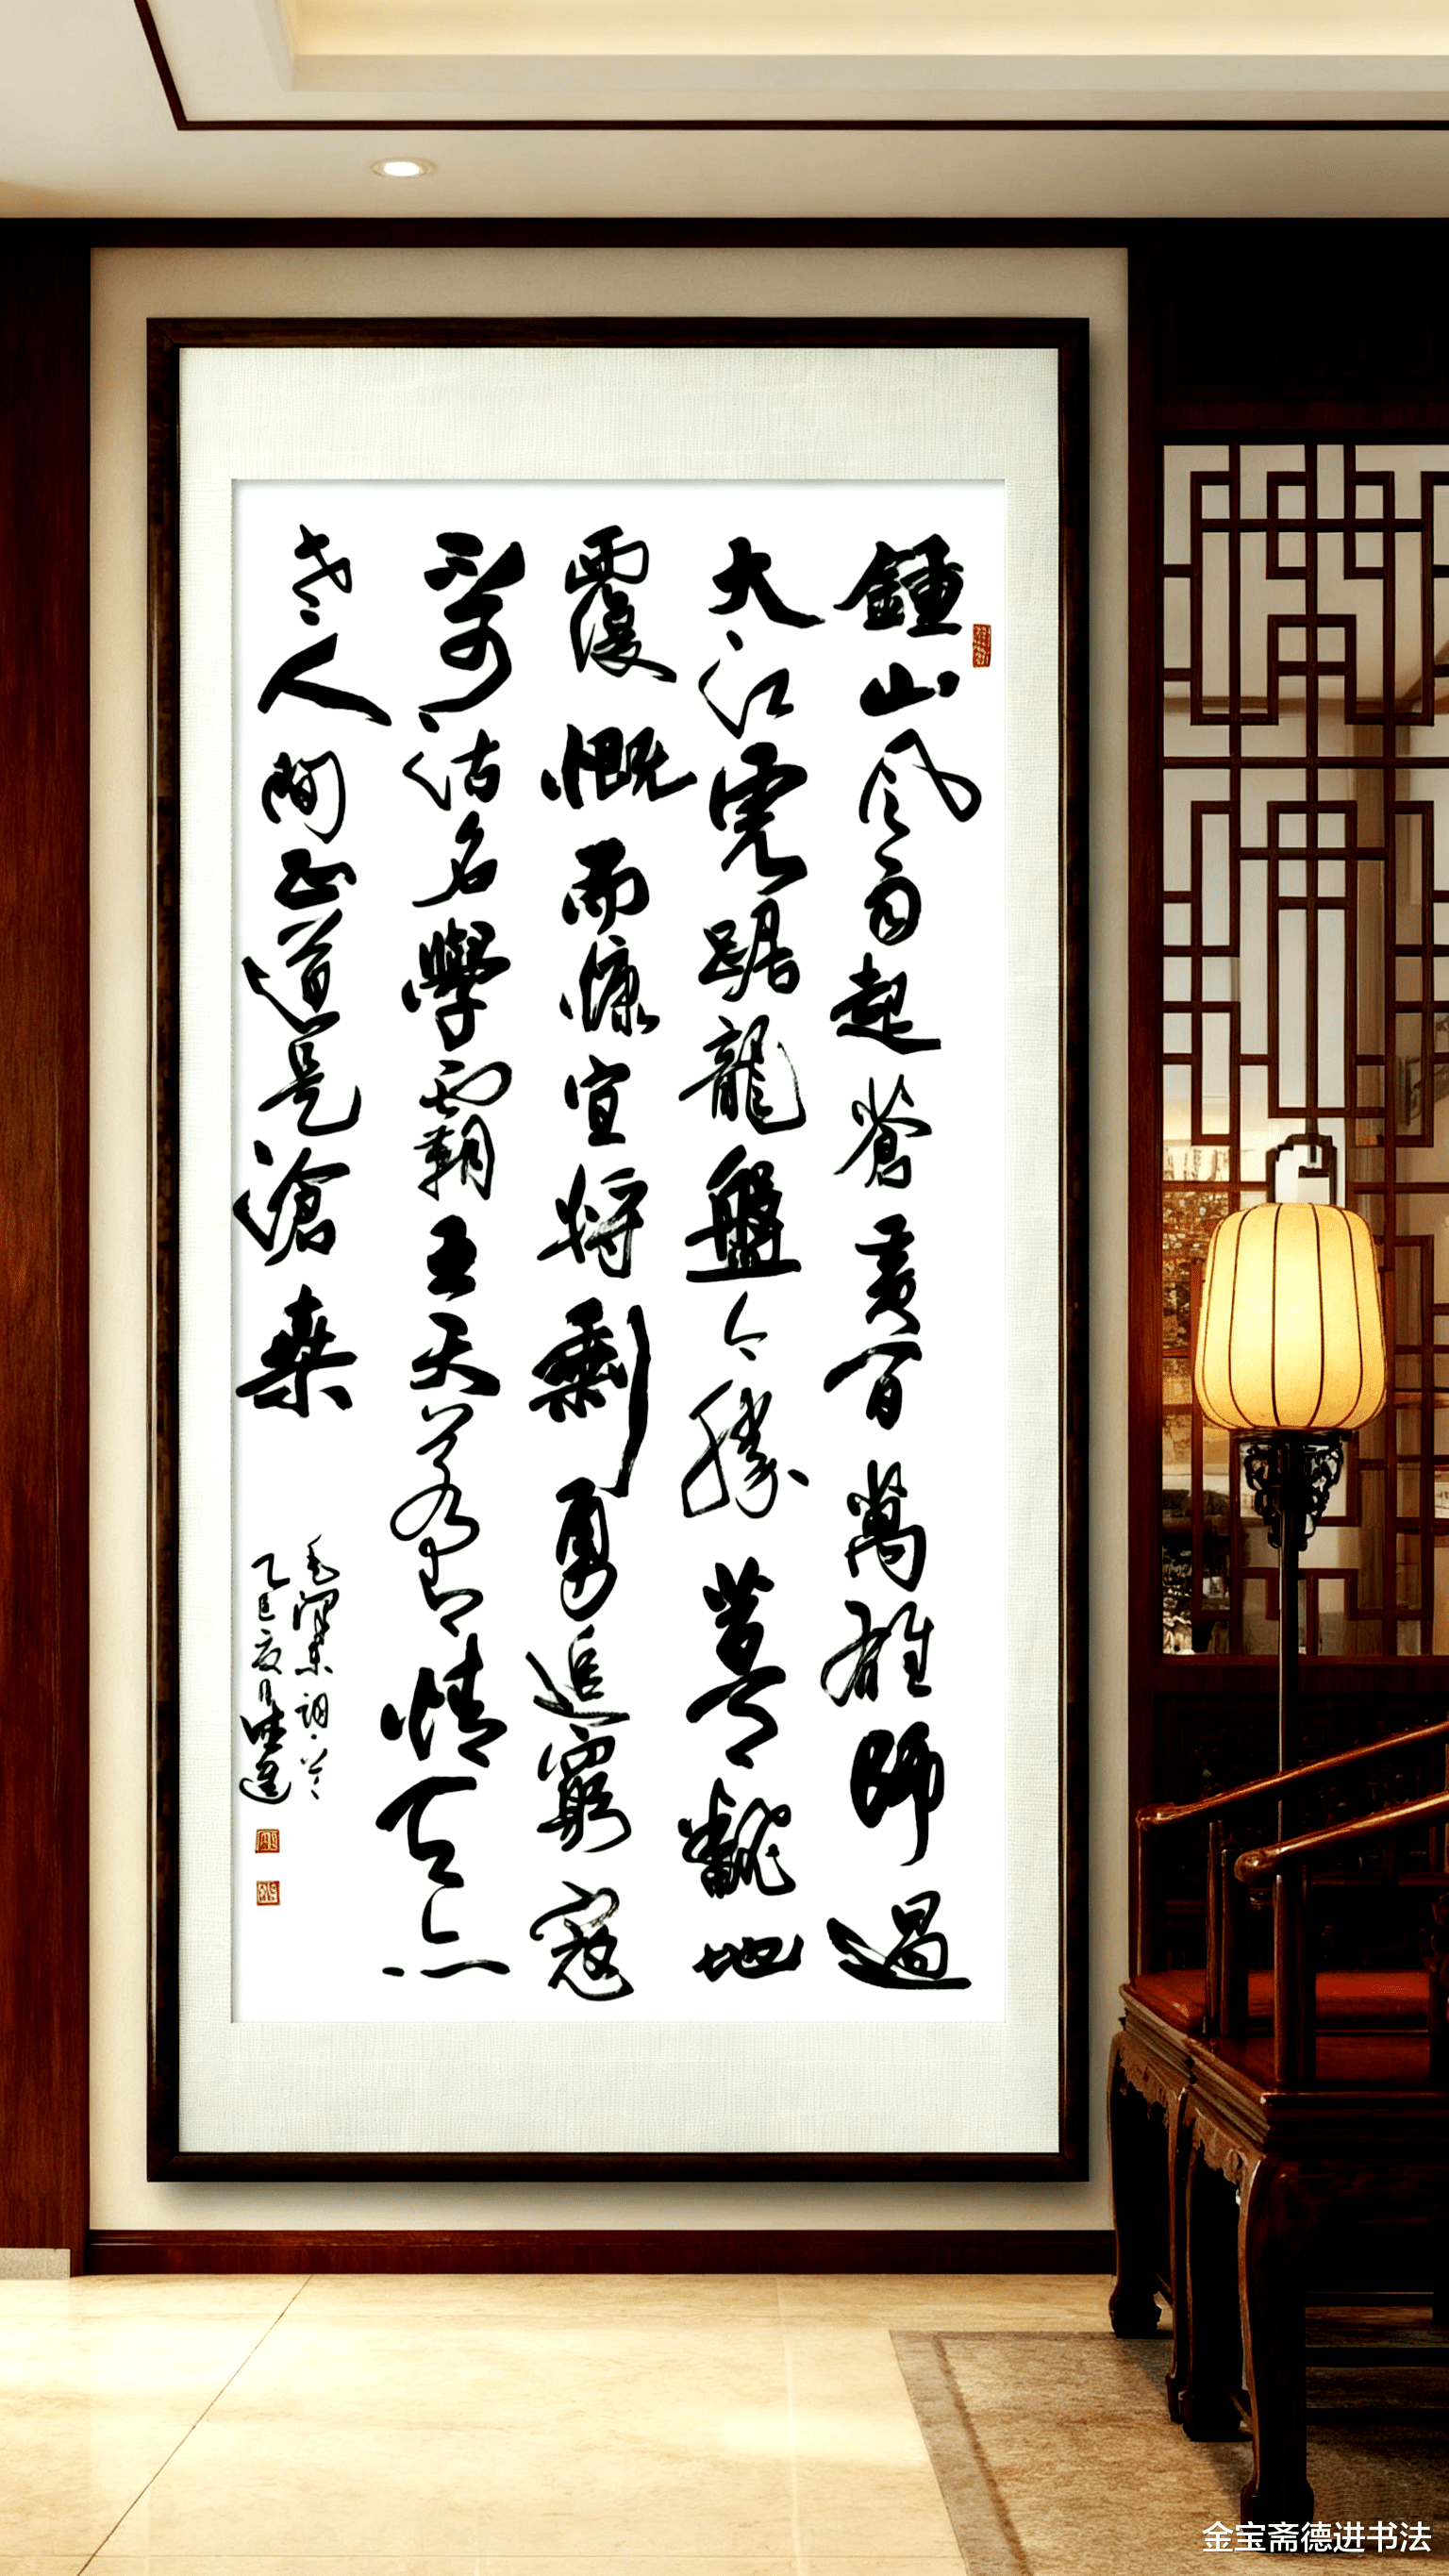 鍾山風雨起蒼黄百萬雄師過
大江虎踞龍盤今勝昔天翻地
覆慨而慷宜將剩勇追窮寇
不可沽名學霸王天若有情天亦
老人間正道是滄桑
毛澤東詞
乙巳夏月德進
金宝斋德进书法